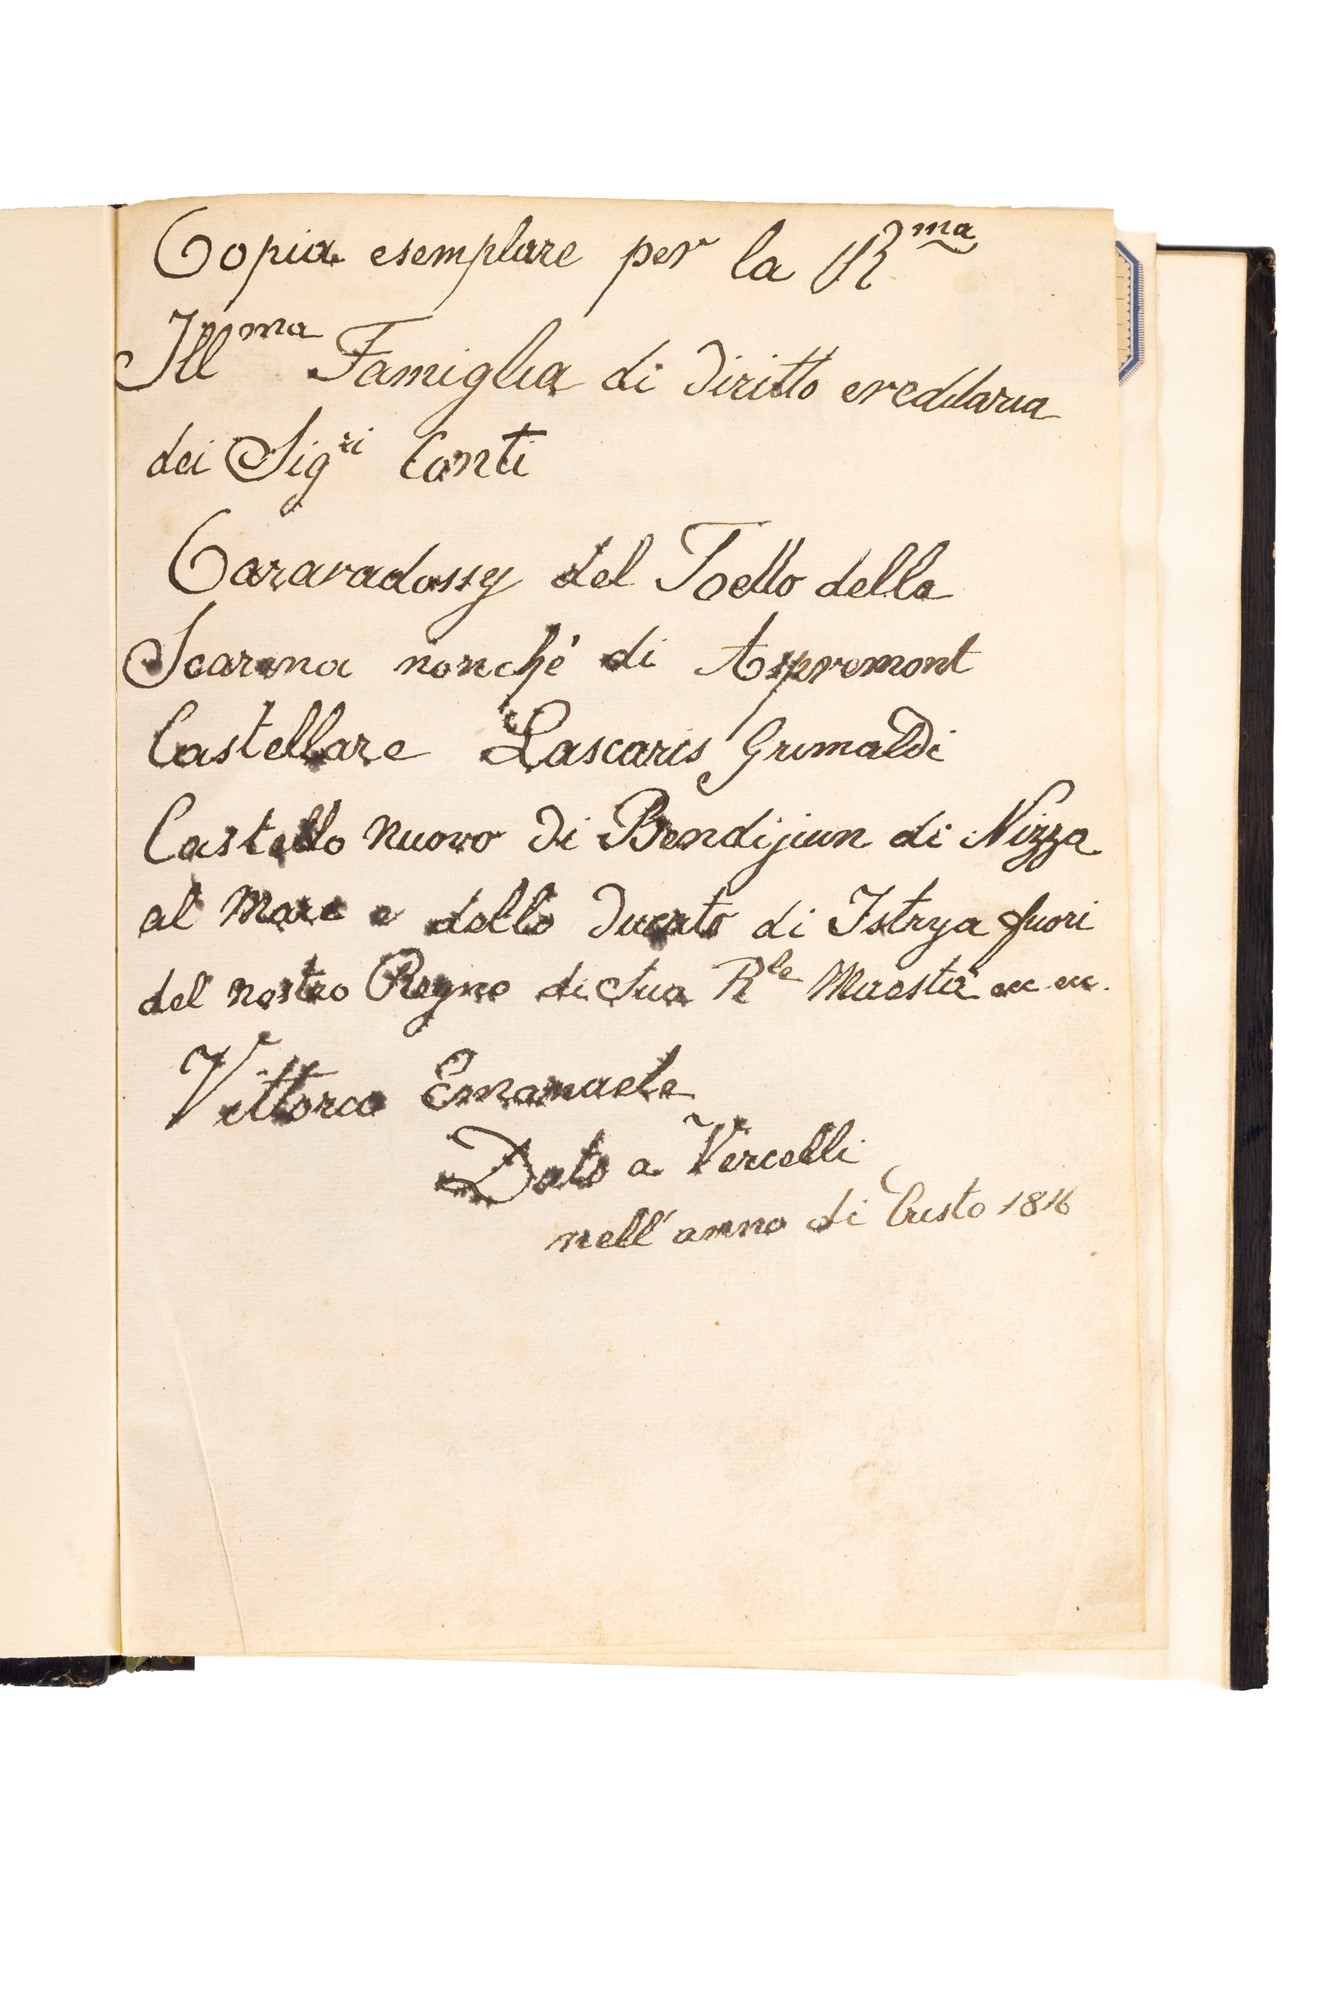 Copia esemplare per la R^ma
Ill^ma Famiglia di diritto ereditaria
dei Sig^ri Conti
Caravadossy del Toello della
Scarena nonchè di Aspremont
Castellare Lascaris Grimaldi
Castello nuovo di Bendijiun di Nizza
al Mare e dello ducato di Istrya fuori
del nostro Regno di Sua R^le Maestà ecc ecc.
Vittorio Emanuele
Dato a Vercelli
nell' anno di Cristo 1816